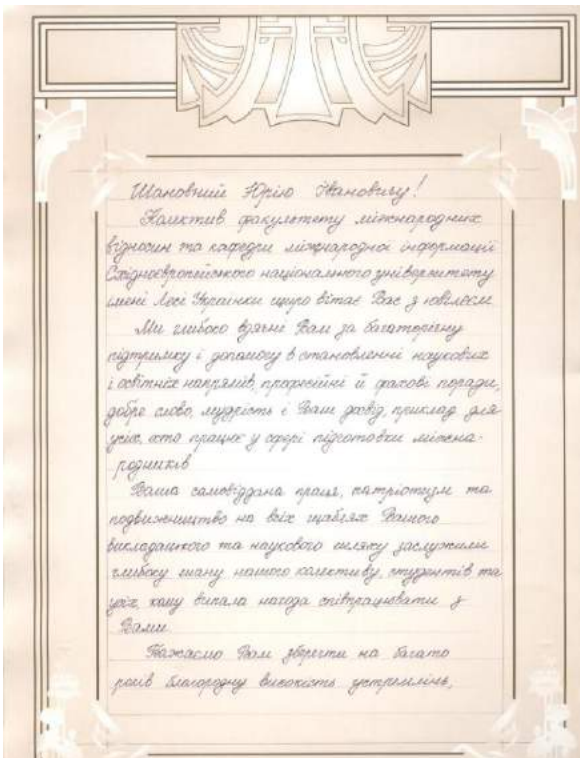 Шановний Юрію Івановичу!
Колектив факультету міжнародних
відносин та кафедри міжнародної інформації
Східноєвропейського національного університету
імені Лесі Українки щиро вітає Вас з ювілеєм
Ми глибоко вдячні Вам за багаторічну
підтримку і допомогу в становленні наукових
і освітніх напрямів, професійні й фахові поради,
добре слово, мудрість і Ваш досвід, приклад для
усіх, хто працює у сфері підготовки міжна-
родників
Ваша самовіддана праця, патріотизм та
подвижництво на всіх щаблях Вашого
викладацького та наукового шляху заслужили
глибоку шану нашого колективу, студентів та
усіх, кому випала нагода співпрацювати з
Вами.
Бажаємо Вам зберегти на багато
років благородну високість устремлінь,